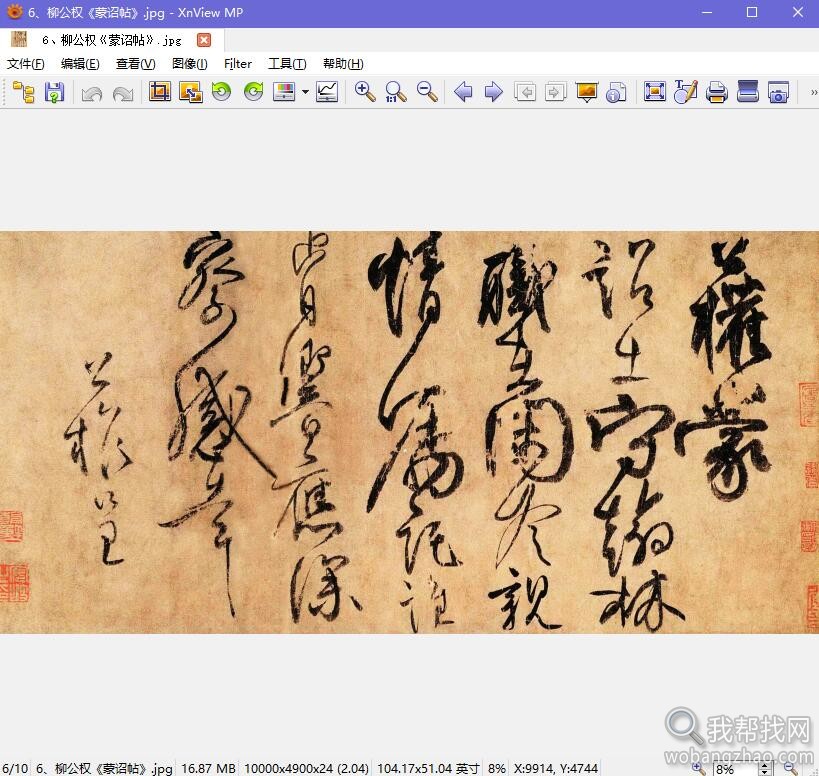 6、柳公权《蒙诏帖》.jpg - XnView MP
6、柳公权《蒙诏帖》.jpg
文件(F) 编辑(E) 查看(V) 图像(I) Filter 工具(T) 帮助(H)
1:1
公權蒙
詔出守翰林
職在閑冷親
情囑託誰
肯響應深
察感幸
公權呈
我帮找网
wobangzhao.com
6/10 6、柳公权《蒙诏帖》.jpg 16.87 MB 10000x4900x24 (2.04) 104.17x51.04 英寸 8% X:9914, Y:4744 8%